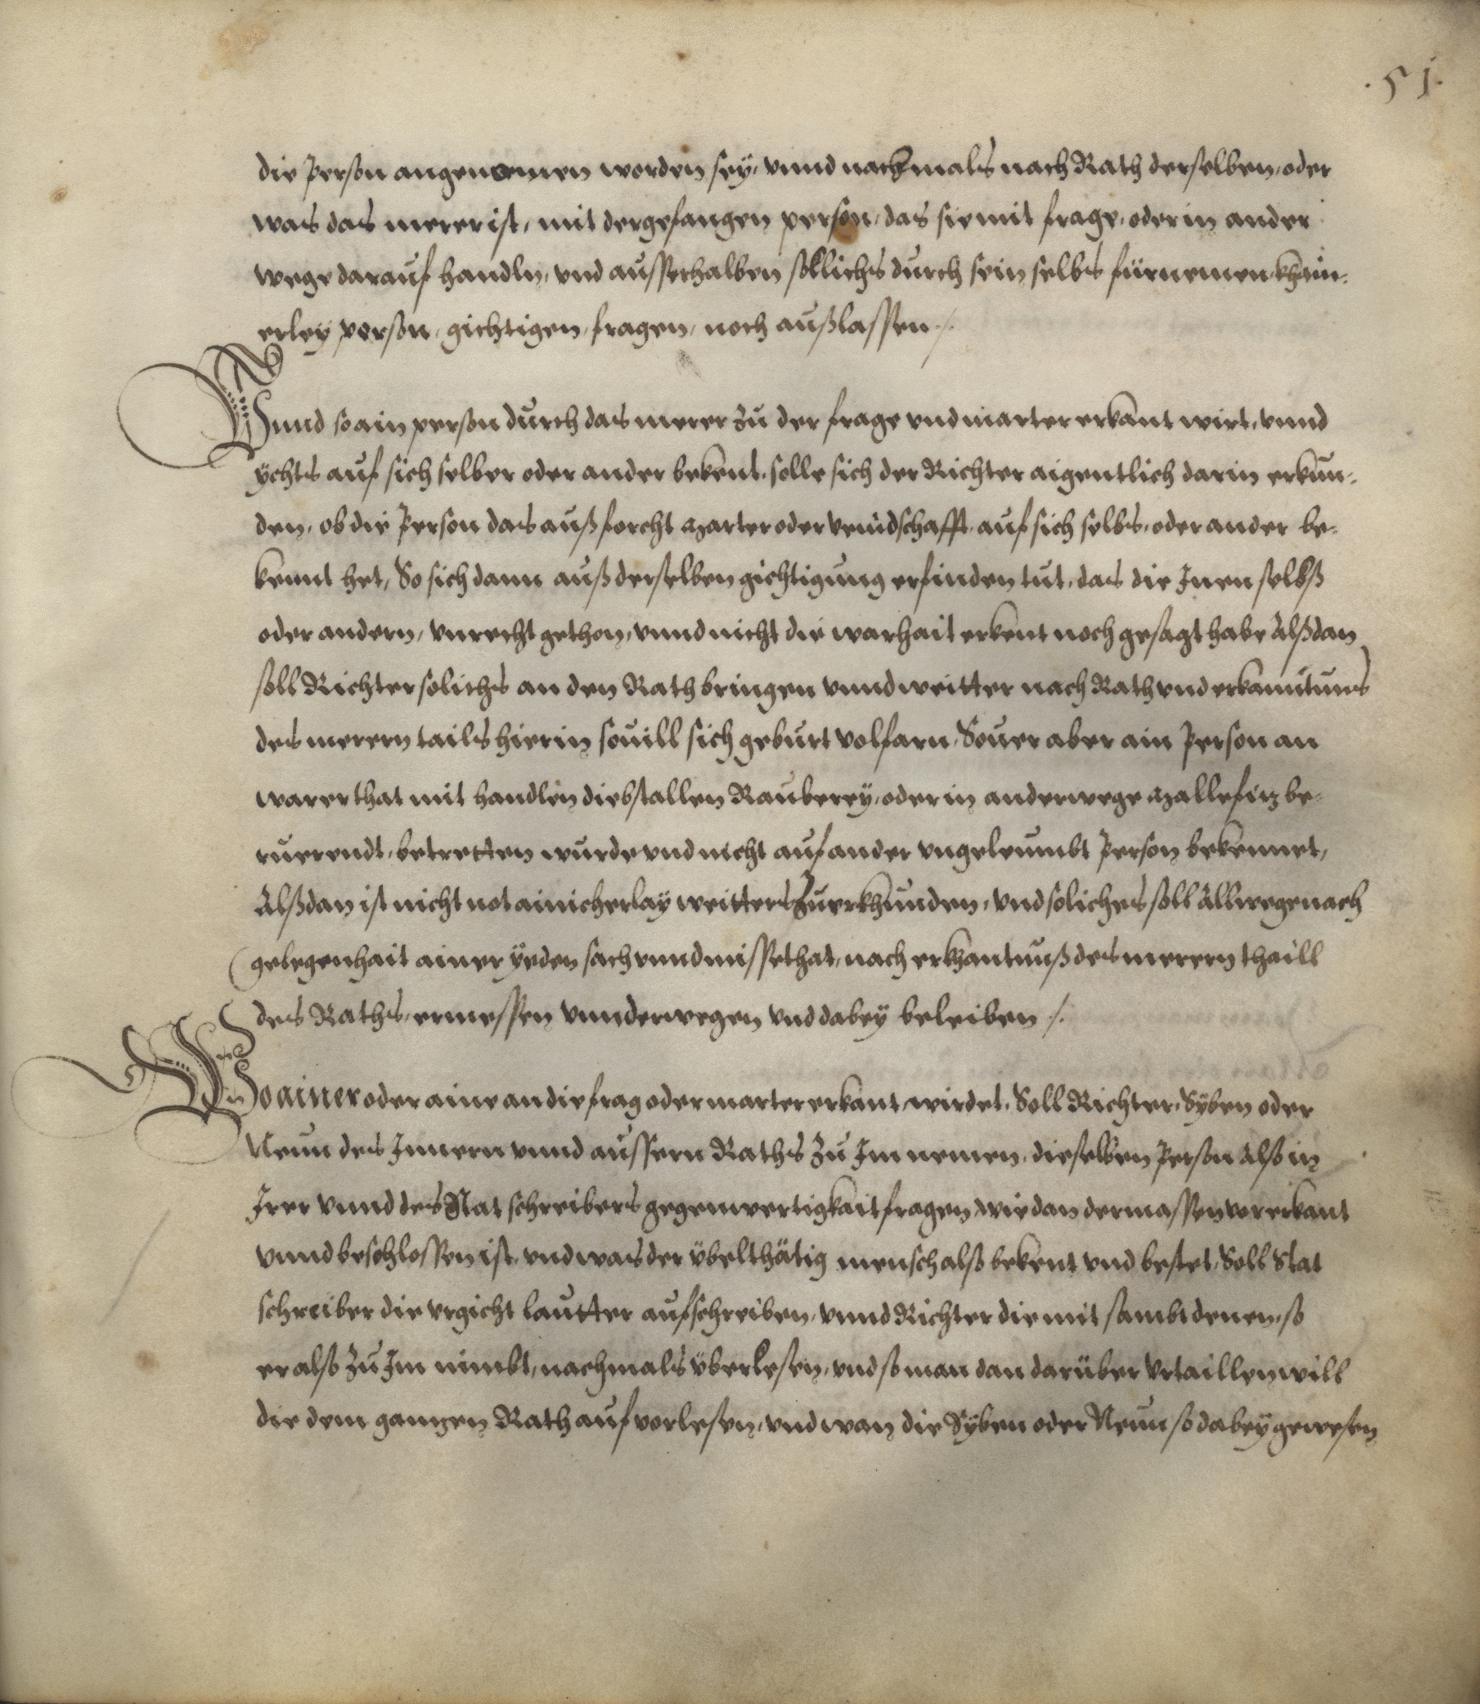 .51.
die Person angenomen worden seÿ, vnnd nachmals nach Rath derselben, oder
was das merer ist, mit der gefangen person, das sie mit frage, oder in ander
wege darauf handln, vnd ausserhalben sollichs durch sein selbs fürnemen khain-
erleÿ person, gichtigen, fragen, noch außlassen ./.
Vnnd so ain person durch das merer zu der frage vnd marter erkant wirt, vnnd
ÿchts auf sich selber oder ander bekent, solle sich der Richter aigentlich darin erkun-
den, ob die Person das auß forcht marter oder veindschafft, auf sich selbs, oder ander be-
kennt het, So sich dann auß derselben gichtigung erfinden tut, das die Inen selbß
oder andern, vnrecht gethon, vnnd nicht die warhait erkent noch gesagt habe Alßdan
soll Richter solichs an den Rath bringen vnnd weitter nach Rath vnd erkanntnus
des merern tails hierin souill sich geburt volfarn, Souer aber ain Person an
warer that mit handlen diebstallen Rauberey, oder in anderwege mallefitz be-
ruerendt, betretten wurde vnd nicht auf ander vngeleumbt Person bekennet,
Alßdan ist nicht not ainicherlay weitters Zuerkhunden, vnd soliches soll Allwege nach
gelegenhait ainer ÿeden sach vnnd missethat, nach erkhantnuß des merern thaill
des Raths, ermessen vnnd erwegen vnd dabeÿ beleiben ./.
Wo ainer oder aine an die frag oder marter erkant wirdet, Soll Richter, Sÿben oder
Neun des Innern vnnd aussern Raths zu Im nemen, dieselben Person also in
Irer vnnd des Statschreibers gegenwertigkait fragen, wie dan dermassen vor erkant
vnnd beschlossen ist, vnd was der übelthätig mensch also bekent vnd bestet, Soll Stat
schreiber die vrgicht lautter aufschreiben, vnnd Richter die mit sambt denen, so
er also zu Im nimbt, nachmals überlesen, vnd so man dan darüber Vrtaillen will
die dem ganzen Rath auf vorlesen, vnd wan die Sÿben oder Neun so dabeÿ gewesen